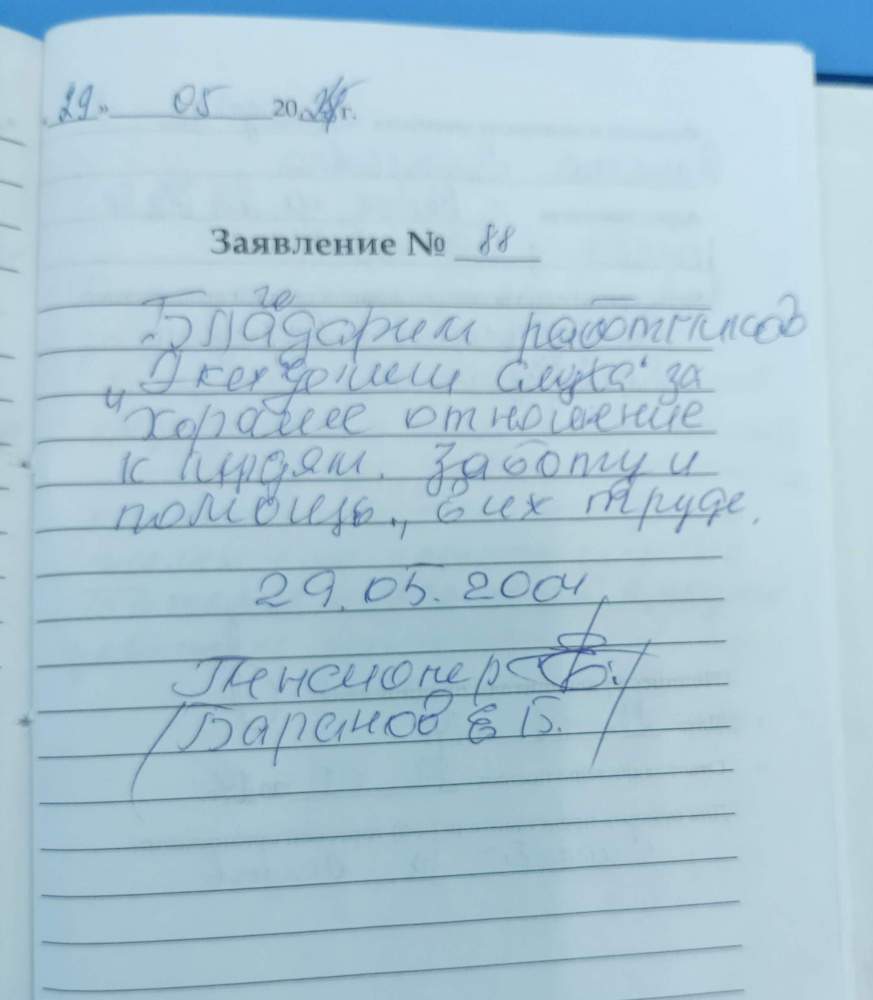 „29" 05 20 г.
Заявление № 88
Благадарим работников
за
"хорошее отношение
к людям. Заботу и
помощь, в их труде.
29.05.2004
Пенсионер
/Баранов Е Б./